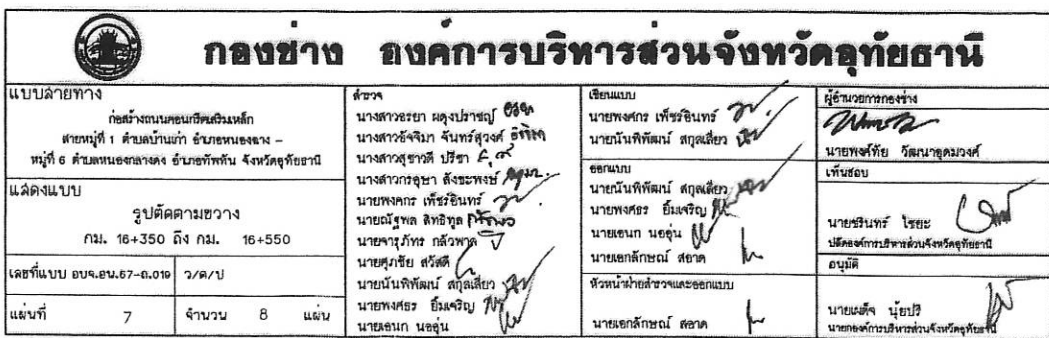 กองช่าง องค์การบริหารส่วนจังหวัดอุทัยธานี
แบบสายทาง
ก่อสร้างถนนคอนกรีตเสริมเหล็ก
สายหมู่ที่ 1 ตำบลบ้านเก่า อำเภอหนองฉาง –
หมู่ที่ 6 ตำบลหนองกลางดง อำเภอทัพทัน จังหวัดอุทัยธานี
แสดงแบบ
รูปตัดตามขวาง
กม. 16+350 ถึง กม. 16+550
เลขที่แบบ อบจ.อน.67-ถ.019 ว/ด/ป
แผ่นที่ 7 จำนวน 8 แผ่น
สำรวจ
นางสาวอรยา ผดุงปราชญ์
นางสาวอัจจิมา จันทร์สุวงศ์
นางสาวสุชาวดี ปรีชา
นางสาวกรอุษา สังขะพงษ์
นายพงศกร เพ็ชรอินทร์
นายณัฐพล สิทธิทูล
นายจารุภัทร กลัวพาล
นายศุภชัย สวัสดี
นายนันพิพัฒน์ สกุลเสี่ยว
นายพงศธร ยิ้มเจริญ
นายเอนก นออุ่น
เขียนแบบ
นายพงศกร เพ็ชรอินทร์
นายนันพิพัฒน์ สกุลเสี่ยว
ออกแบบ
นายนันพิพัฒน์ สกุลเสี่ยว
นายพงศธร ยิ้มเจริญ
นายเอนก นออุ่น
นายเอกลักษณ์ สอาด
หัวหน้าฝ่ายสำรวจและออกแบบ
นายเอกลักษณ์ สอาด
ผู้อำนวยการกองช่าง
นายพงศ์ทัย วัฒนาอุดมวงศ์
เห็นชอบ
นายชรินทร์ ไชยะ
ปลัดองค์การบริหารส่วนจังหวัดอุทัยธานี
อนุมัติ
นายเผด็จ นุ้ยปรี
นายกองค์การบริหารส่วนจังหวัดอุทัยธานี